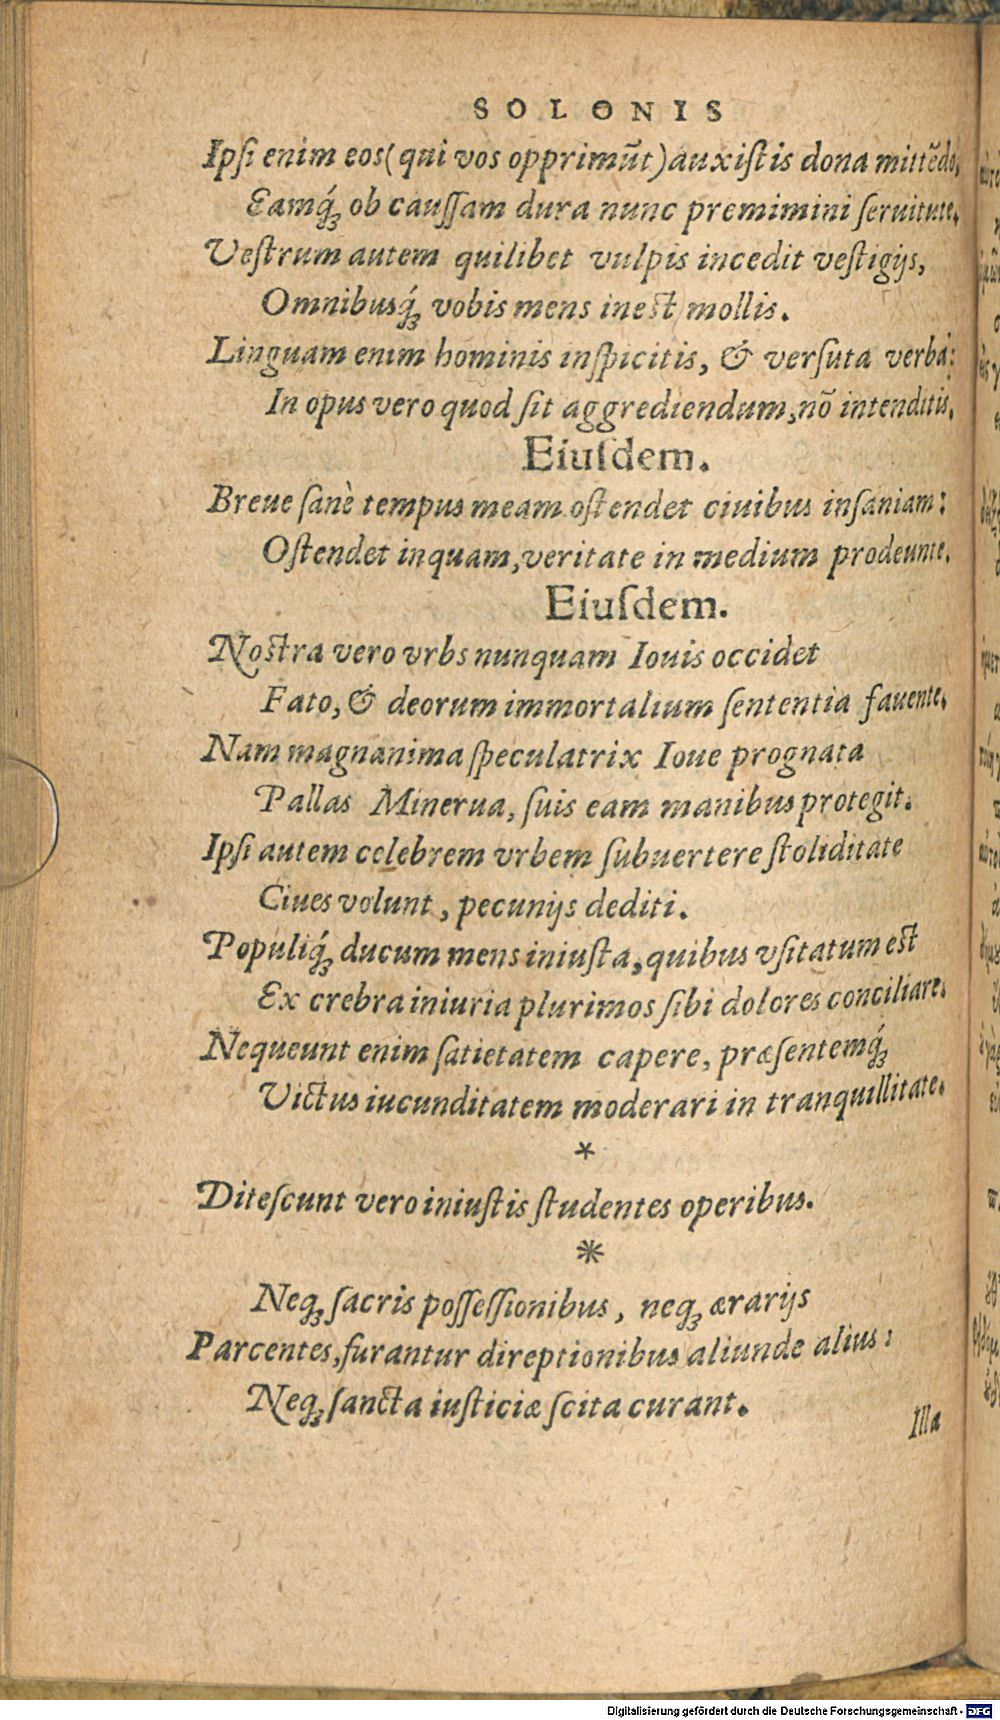 SOLONIS
Ipſi enim eos (qui vos opprimũt) auxiſtis dona mittẽdo,
Eamq́ꝫ ob cauſſam dura nunc premimini ſeruitute.
Veſtrum autem quilibet vulpis incedit veſtigijs,
Omnibusq́ꝫ vobis mens inest mollis.
Linguam enim hominis inſpicitis, & verſuta verba:
In opus vero quod ſit aggrediendum, nõ intenditis.
Eiuſdem.
Breue ſanè tempus meam oſtendet ciuibus inſaniam:
Oſtendet inquam, veritate in medium prodeunte.
Eiuſdem.
Noſtra vero vrbs nunquam Iouis occidet
Fato, & deorum immortalium ſententia fauente.
Nam magnanima ſpeculatrix Ioue prognata
Pallas Minerua, ſuis eam manibus protegit.
Ipſi autem celebrem vrbem ſubuertere ſtoliditate
Ciues volunt, pecunijs dediti.
Populiq́ꝫ ducum mens iniuſta, quibus vſitatum est
Ex crebra iniuria plurimos ſibi dolores conciliare.
Nequeunt enim ſatietatem capere, præſentemq́ꝫ
Victus iucunditatem moderari in tranquillitate.
*
Diteſcunt vero iniuſtis ſtudentes operibus.
*
Neqꝫ ſacris poſſeſſionibus, neqꝫ ærarijs
Parcentes, furantur direptionibus aliunde alius:
Neqꝫ ſancta iuſticiæ ſcita curant.
Illa
Digitalisierung gefördert durch die Deutsche Forschungsgemeinschaft - DFG